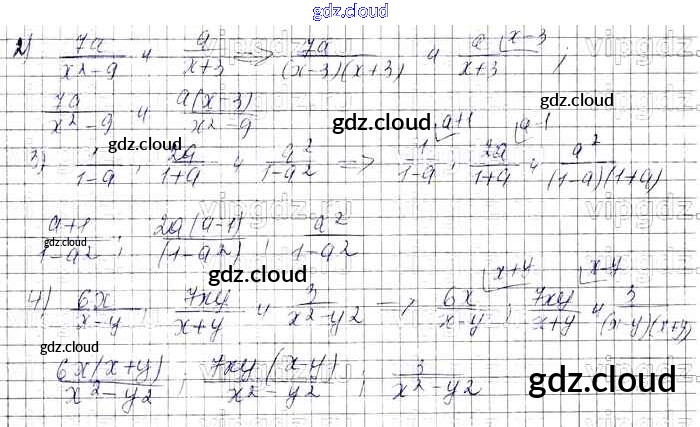 gdz.cloud
2) 7a/(x²-9) и a/(x+3) => 7a/((x-3)(x+3)) и a/(x+3) x-3 ;
7a/(x²-9) и a(x-3)/(x²-9)
gdz.cloud
gdz.cloud
gdz.cloud
3) 1/(1-a) ; 2a/(1+a) и a²/(1-a²) => 1/(1-a) a+1 ; 2a/(1+a) a-1 и a²/((1-a)(1+a))
(a+1)/(1-a²) ; 2a(a-1)/(1-a²) ; a²/(1-a²)
gdz.cloud
gdz.cloud
4) 6x/(x-y) ; 7xy/(x+y) и 3/(x²-y²) => 6x/(x-y) x+y ; 7xy/(x+y) x-y и 3/((x-y)(x+y))
gdz.cloud
6x(x+y)/(x²-y²) ; 7xy(x-y)/(x²-y²) ; 3/(x²-y²)
gdz.cloud